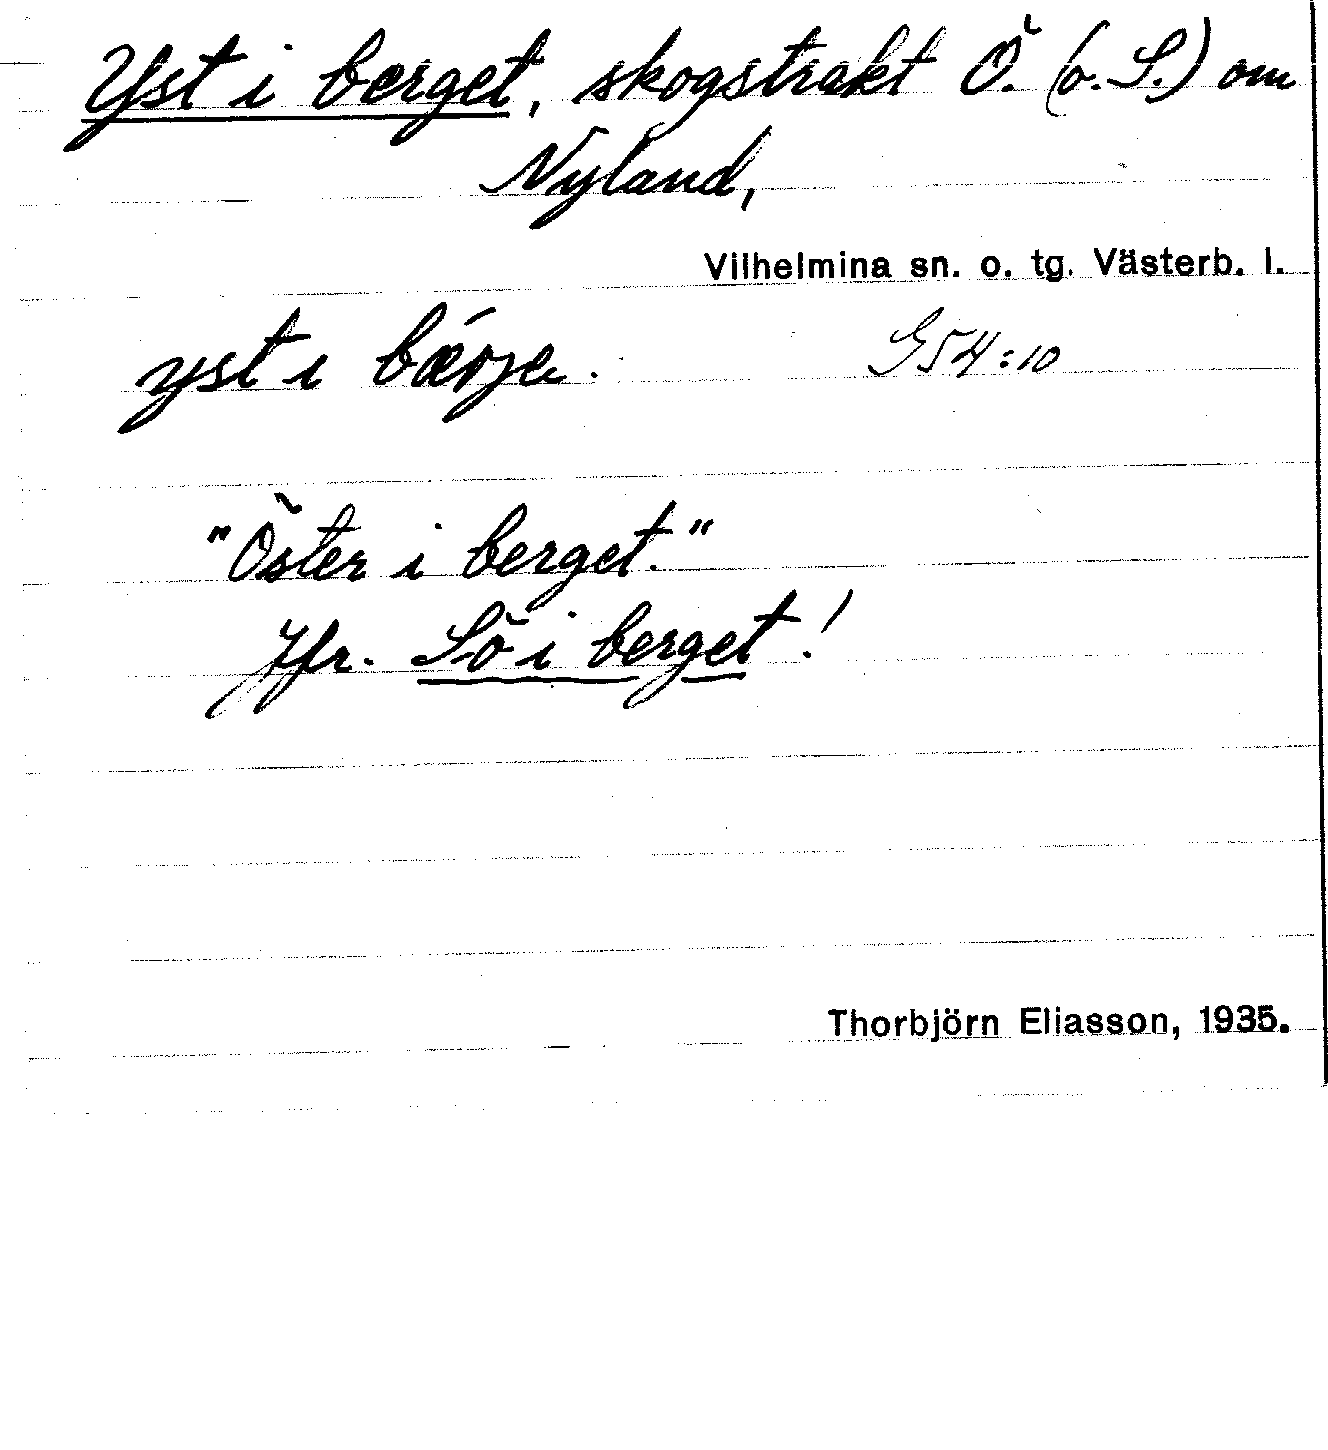 Yst i berget, skogstrakt Ö. (o. S.) om
Nyland,
Vilhelmina sn. o. tg. Västerb. l.
yst i bærje. G54:10
"Öster i berget."
Jfr. Sö i berget!
Thorbjörn Eliasson, 1935.